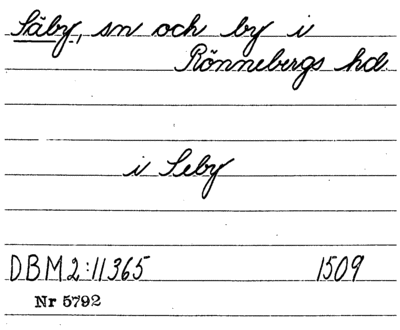 Säby, sn och by i
Rönnebergs hd.
i Seby
DBM2:11365 1509
Nr 5792